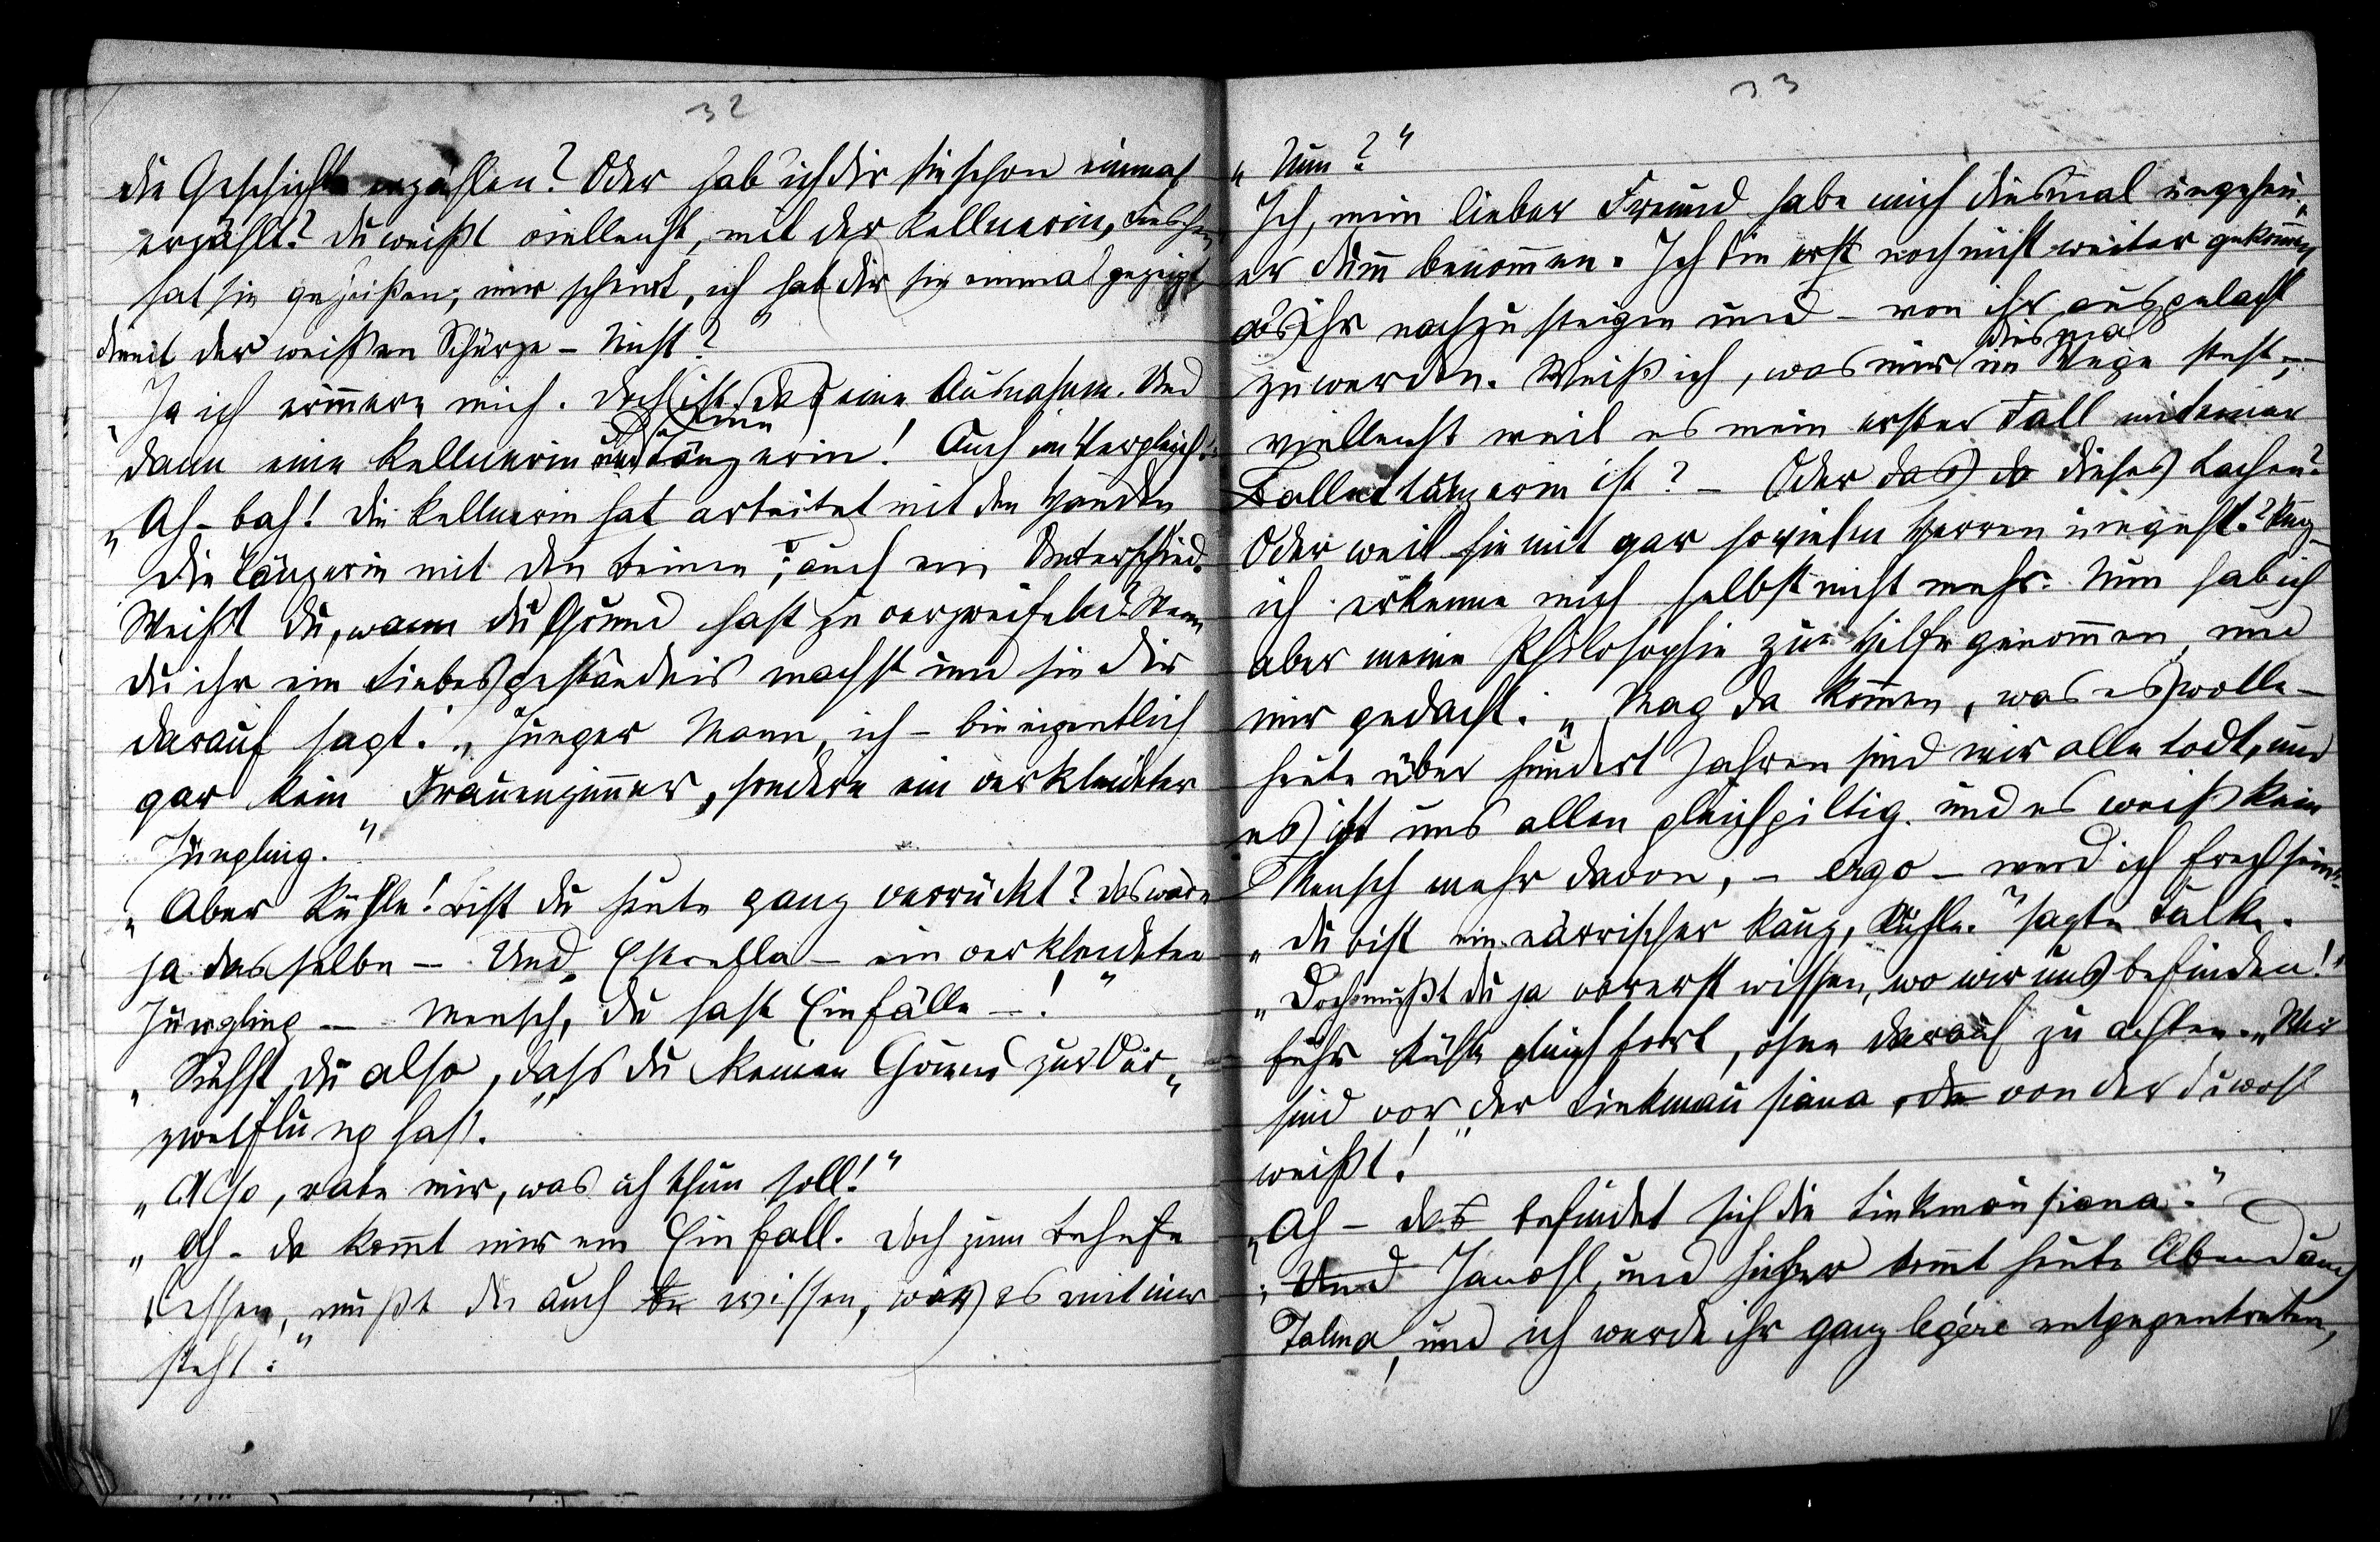 32
die Geschichte erzählen? Oder hab ich dir sie schon einmal
erzählt? Du weißt vielleicht, mit der Kellnerin, Lieschen
hat sie geheißen; mir scheint, ich hab dir sie einmal gezeigt
die mit der weißen Schürze – Nicht?"
"Ja ich erinnere mich. Doch ist das eine Ausnahme. Und
dann eine Kellnerin und eine Tänzerin! Auch ein Vergleich.
"Ah – bah! Die Kellnerin hat arbeitet mit den Händen
die Tänzerin mit den Beinen; auch ein Unterschied.
Weißt du, wann du Grund hast zu verzweifeln? Wenn
du ihr ein Liebesgeständnis machst und sie dir
darauf sagt: "Junger Mann, ich – bin eigentlich
gar kein Frauenzimmer, sondern ein verkleideter
Jüngling."
"Aber Kühle! bist du heute ganz verrückt? Das wäre
ja dasselbe – Und Estrella – ein verkleideter
Jüngling – Mensch, du hast Einfälle –!"
"Siehst du also, dass du keinen Grund zur Ver„
zweiflung hast."
"Also, rate mir, was ich thun soll!"
"Ah – da kommt mir ein Einfall. Doch zum Behufe
dessen, mußt du auch wissen, wie es mit mir
steht."
33
"Nun?"
Ich, mein lieber Freund habe mich diesmal ungeheu„
er dumm benommen. Ich bin erst noch nicht weiter gekommen
als ihr nachzusteigen und – von ihr ausgelacht
zu werden. Weiß ich, was mir diesmal im Wege steht, –
vielleicht weil es mein erster Fall mit einer
Ballettänzerin ist? – Oder das da dieses Lachen?
Oder weil sie mit gar so vielen Herren umgeht? Kurz
ich erkenne mich selbst nicht mehr. Nun hab ich
aber meine Philosophie zur Hilfe genommen und
mir gedacht: "Mag da kommen, was es wolle –
heute über hundert Jahren sind wir alle todt, und
es ist uns allen gleichgiltig. und es weiß kein
Mensch mehr davon, – ergo – werd ich frech sein."
"Du bist ein närrischer Kauz, Kühle." sagte Falke.
"Doch mußt du ja vorerst wissen, wo wir uns befinden!"
fuhr Kühle gleich fort, ohne darauf zu achten. "Wir
sind vor der Linkmausiana, da von der du wohl
weißt!"
"Ah – das befindet sich die Linkmausiana."
"Und Jawohl, und hieher kommt heute Abend auch
Talma, und ich werde ihr ganz legére entgegentreten,